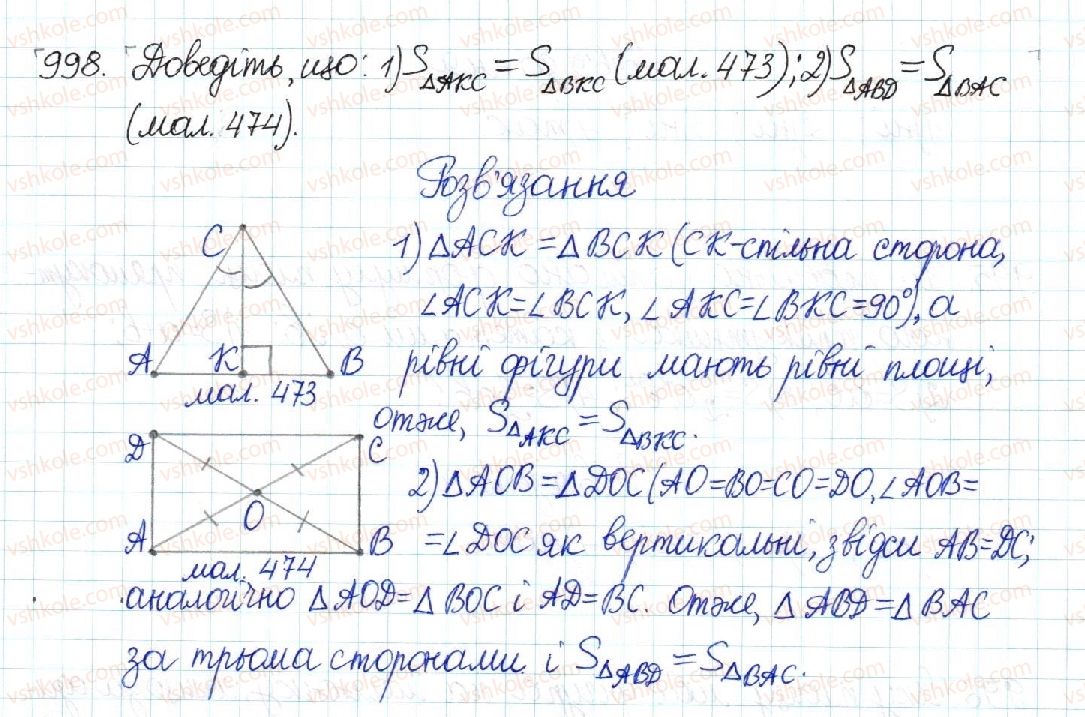 998. Доведіть, що: 1) S△AKC = S△BKC (мал. 473); 2) S△ABD = S△BAC
(мал. 474).
Розв'язання
C
A K B
мал. 473
1) △ACK = △BCK (CK-спільна сторона,
∠ACK=∠BCK, ∠AKC=∠BKC=90°), а
рівні фігури мають рівні площі,
отже, S△AKC = S△BKC.
D C
O
A B
мал. 474
2) △AOB = △DOC (AO=BO=CO=DO, ∠AOB=
=∠DOC як вертикальні, звідси AB=DC;
аналогічно △AOD=△BOC і AD=BC. Отже, △ABD=△BAC
за трьома сторонами і S△ABD = S△BAC.
vshkole.com